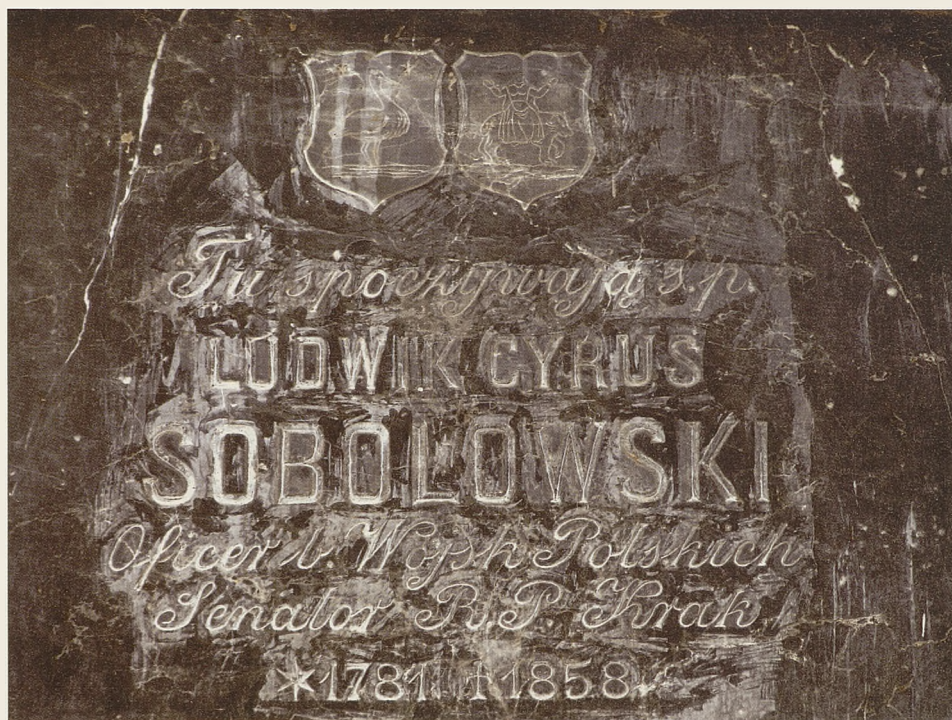 Tu spoczywają s.p.
LUDWIK CYRUS
SOBOLOWSKI
Oficer b. Wojsk Polskich
Senator R. P. Krak.
*1781 †1858